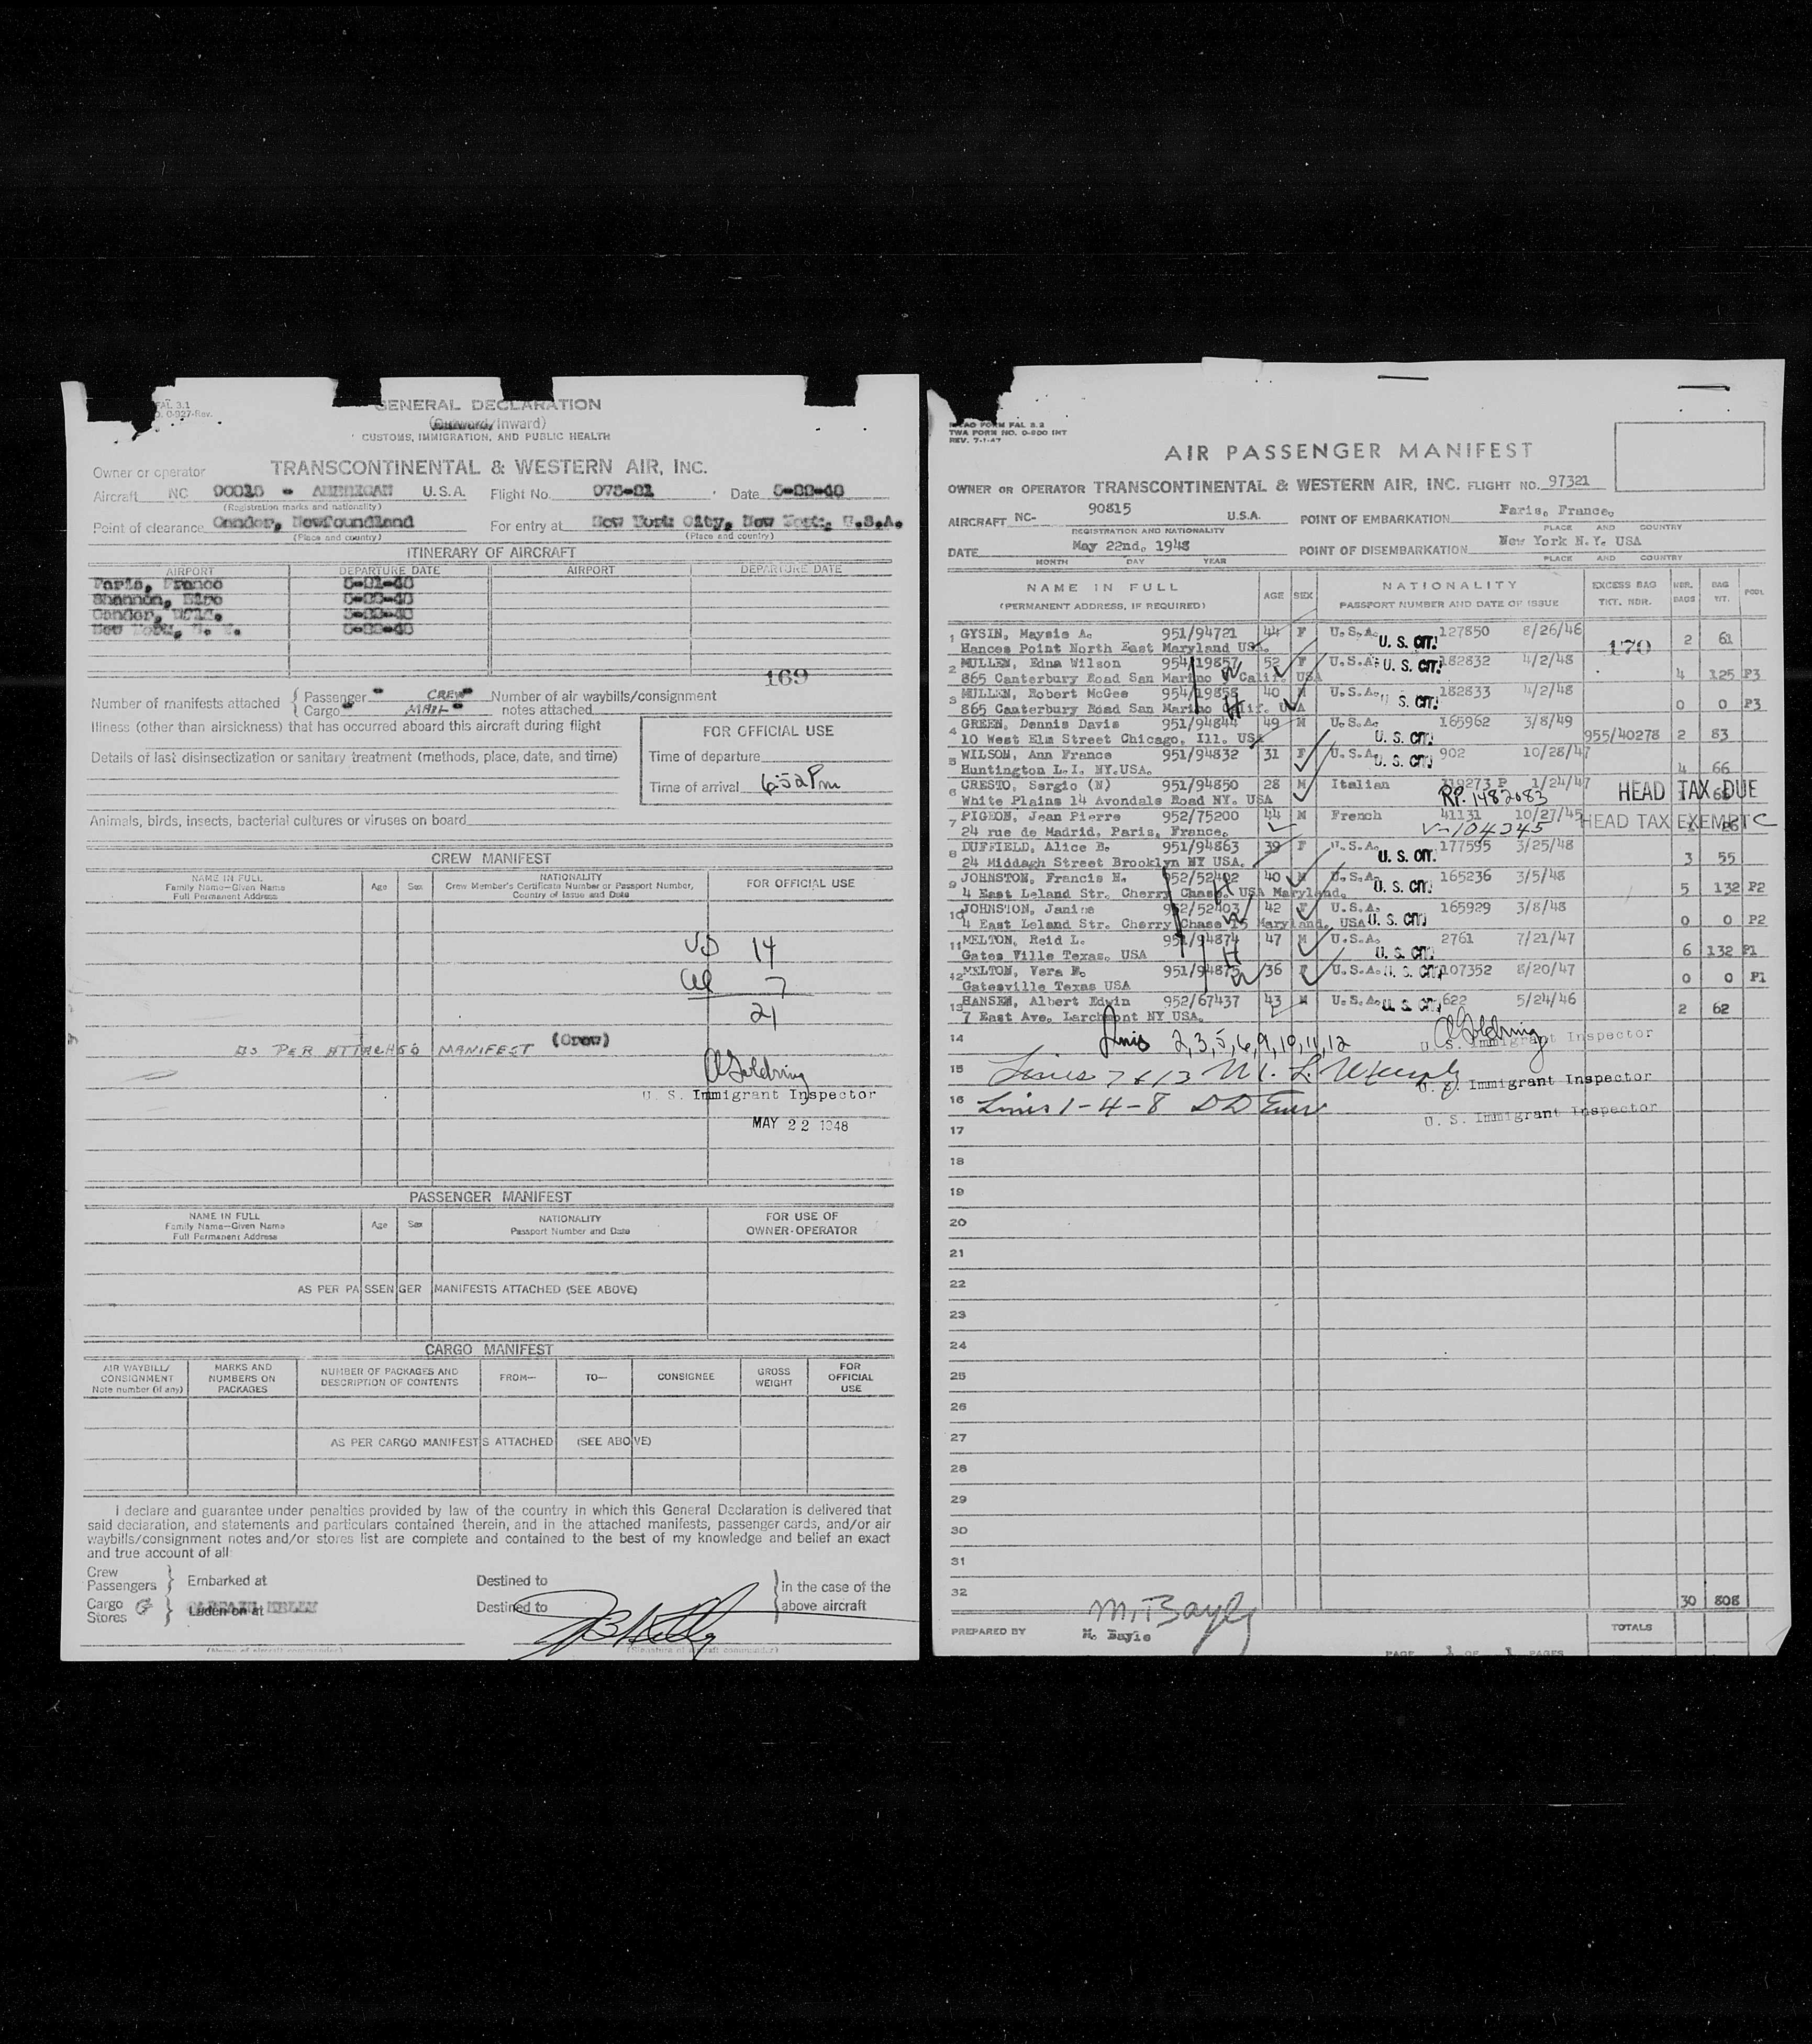 FAL 3.1
0-927-Rev.
GENERAL DECLARATION
(Outward/Inward)
CUSTOMS, IMMIGRATION, AND PUBLIC HEALTH
Owner or operator TRANSCONTINENTAL & WESTERN AIR, INC.
Aircraft NC 90815 - AMERICAN U.S.A. Flight No. 973-21 Date 5-22-48
(Registration marks and nationality)
Point of clearance Gander, Newfoundland For entry at New York City, New York, U.S.A.
(Place and country) (Place and country)
ITINERARY OF AIRCRAFT
AIRPORT DEPARTURE DATE AIRPORT DEPARTURE DATE
Paris, France 5-21-48
Shannon, Eire 5-22-48
Gander, 5-22-48
New York, N. Y. 5-22-48
169
Number of manifests attached { Passenger CREW Number of air waybills/consignment
Cargo MAIL notes attached
Illness (other than airsickness) that has occurred aboard this aircraft during flight
FOR OFFICIAL USE
Details of last disinsectization or sanitary treatment (methods, place, date, and time)
Time of departure
Time of arrival 6:52 Pm
Animals, birds, insects, bacterial cultures or viruses on board
CREW MANIFEST
NAME IN FULL
Family Name—Given Name
Full Permanent Address
Age Sex
NATIONALITY
Crew Member's Certificate Number or Passport Number,
Country of Issue and Date
FOR OFFICIAL USE
US 14
al 7
21
AS PER ATTACHED MANIFEST (Crew)
A Goldring
U. S. Immigrant Inspector
MAY 22 1948
PASSENGER MANIFEST
NAME IN FULL
Family Name—Given Name
Full Permanent Address
Age Sex
NATIONALITY
Passport Number and Date
FOR USE OF
OWNER-OPERATOR
AS PER PASSENGER MANIFESTS ATTACHED (SEE ABOVE)
CARGO MANIFEST
AIR WAYBILL/
CONSIGNMENT
Note number (if any)
MARKS AND
NUMBERS ON
PACKAGES
NUMBER OF PACKAGES AND
DESCRIPTION OF CONTENTS
FROM—
TO—
CONSIGNEE
GROSS
WEIGHT
FOR
OFFICIAL
USE
AS PER CARGO MANIFESTS ATTACHED (SEE ABOVE)
I declare and guarantee under penalties provided by law of the country in which this General Declaration is delivered that
said declaration, and statements and particulars contained therein, and in the attached manifests, passenger cards, and/or air
waybills/consignment notes and/or stores list are complete and contained to the best of my knowledge and belief an exact
and true account of all:
Crew
Passengers } Embarked at Destined to } in the case of the
Cargo
Stores } Laden on at CAPTAIN KELLY Destined to above aircraft
(Name of aircraft commander) (Signature of aircraft commander)
ICAO FORM FAL 3.2
TWA FORM NO. 0-800 INT
REV. 7-1-47
AIR PASSENGER MANIFEST
OWNER OR OPERATOR TRANSCONTINENTAL & WESTERN AIR, INC. FLIGHT NO. 97321
AIRCRAFT NC- 90815 U.S.A. POINT OF EMBARKATION Paris, France,
REGISTRATION AND NATIONALITY PLACE AND COUNTRY
DATE May 22nd, 1948 POINT OF DISEMBARKATION New York N.Y. USA
MONTH DAY YEAR PLACE AND COUNTRY
NAME IN FULL
(PERMANENT ADDRESS, IF REQUIRED)
AGE SEX
NATIONALITY
PASSPORT NUMBER AND DATE OF ISSUE
EXCESS BAG
TKT. NBR.
NBR.
BAGS
BAG
WT.
POOL
1 GYSIN, Maysie A. 951/94721 44 F U.S.A. U. S. CIT. 127850 8/26/46 170 2 61
Hances Point North East Maryland USA.
2 MULLEN, Edna Wilson 954/19857 52 F U.S.A. U. S. CIT. 182832 4/2/48 4 125 P3
865 Canterbury Road San Marino Calif. USA W
3 MULLEN, Robert McGee 954/19858 40 M U.S.A. U. S. CIT. 182833 4/2/48 0 0 P3
865 Canterbury Road San Marino Calif. USA H
4 GREEN, Dennis Davis 951/94844 49 M U.S.A. U. S. CIT. 165962 3/8/49 955/40278 2 83
10 West Elm Street Chicago, Ill. USA
5 WILSON, Ann France 951/94832 31 F U.S.A. U. S. CIT. 902 10/28/47 4 66
Huntington L.I. NY.USA.
6 CRESTO, Sergio (N) 951/94850 28 M Italian P 1/24/47 HEAD TAX DUE
White Plains 14 Avondale Road NY. USA RP. 1482083
7 PIGEON, Jean Pierre 952/75200 44 M French 41131 10/27/45 HEAD TAX EXEMPT C
24 rue de Madrid, Paris, France. V-104245
8 DUFFIELD, Alice B. 951/94863 39 F U.S.A. U. S. CIT. 177595 3/25/48 3 55
24 Middagh Street Brooklyn NY USA.
9 JOHNSTON, Francis H. 952/52402 40 M U.S.A. U. S. CIT. 165236 3/5/48 5 132 P2
4 East Leland Str. Cherry Chase. USA Maryland. H
10 JOHNSTON, Janine 952/52403 42 F U.S.A. U. S. CIT. 165929 3/8/48 0 0 P2
4 East Leland Str. Cherry Chase 15 Maryland. USA W
11 MELTON, Reid L. 951/94874 47 M U.S.A. U. S. CIT. 2761 7/21/47 6 132 P1
Gates Ville Texas. USA H
12 MELTON, Vera F. 951/94875 36 F U.S.A. U. S. CIT. 107352 8/20/47 0 0 P1
Gatesville Texas USA W
13 HANSEN, Albert Edwin 952/67437 43 M U.S.A. U. S. CIT. 622 5/24/46 2 62
7 East Ave. Larchmont NY USA.
14 Lines 2,3,5,6,9,10,11,12 A Goldring
U. S. Immigrant Inspector
15 Lines 7 & 13 M. L.
U. S. Immigrant Inspector
16 Lines 1-4-8 DD
U. S. Immigrant Inspector
17
18
19
20
21
22
23
24
25
26
27
28
29
30
31
32 30 808
M. Bayle
PREPARED BY M. Bayle TOTALS
PAGE 1 OF 1 PAGES